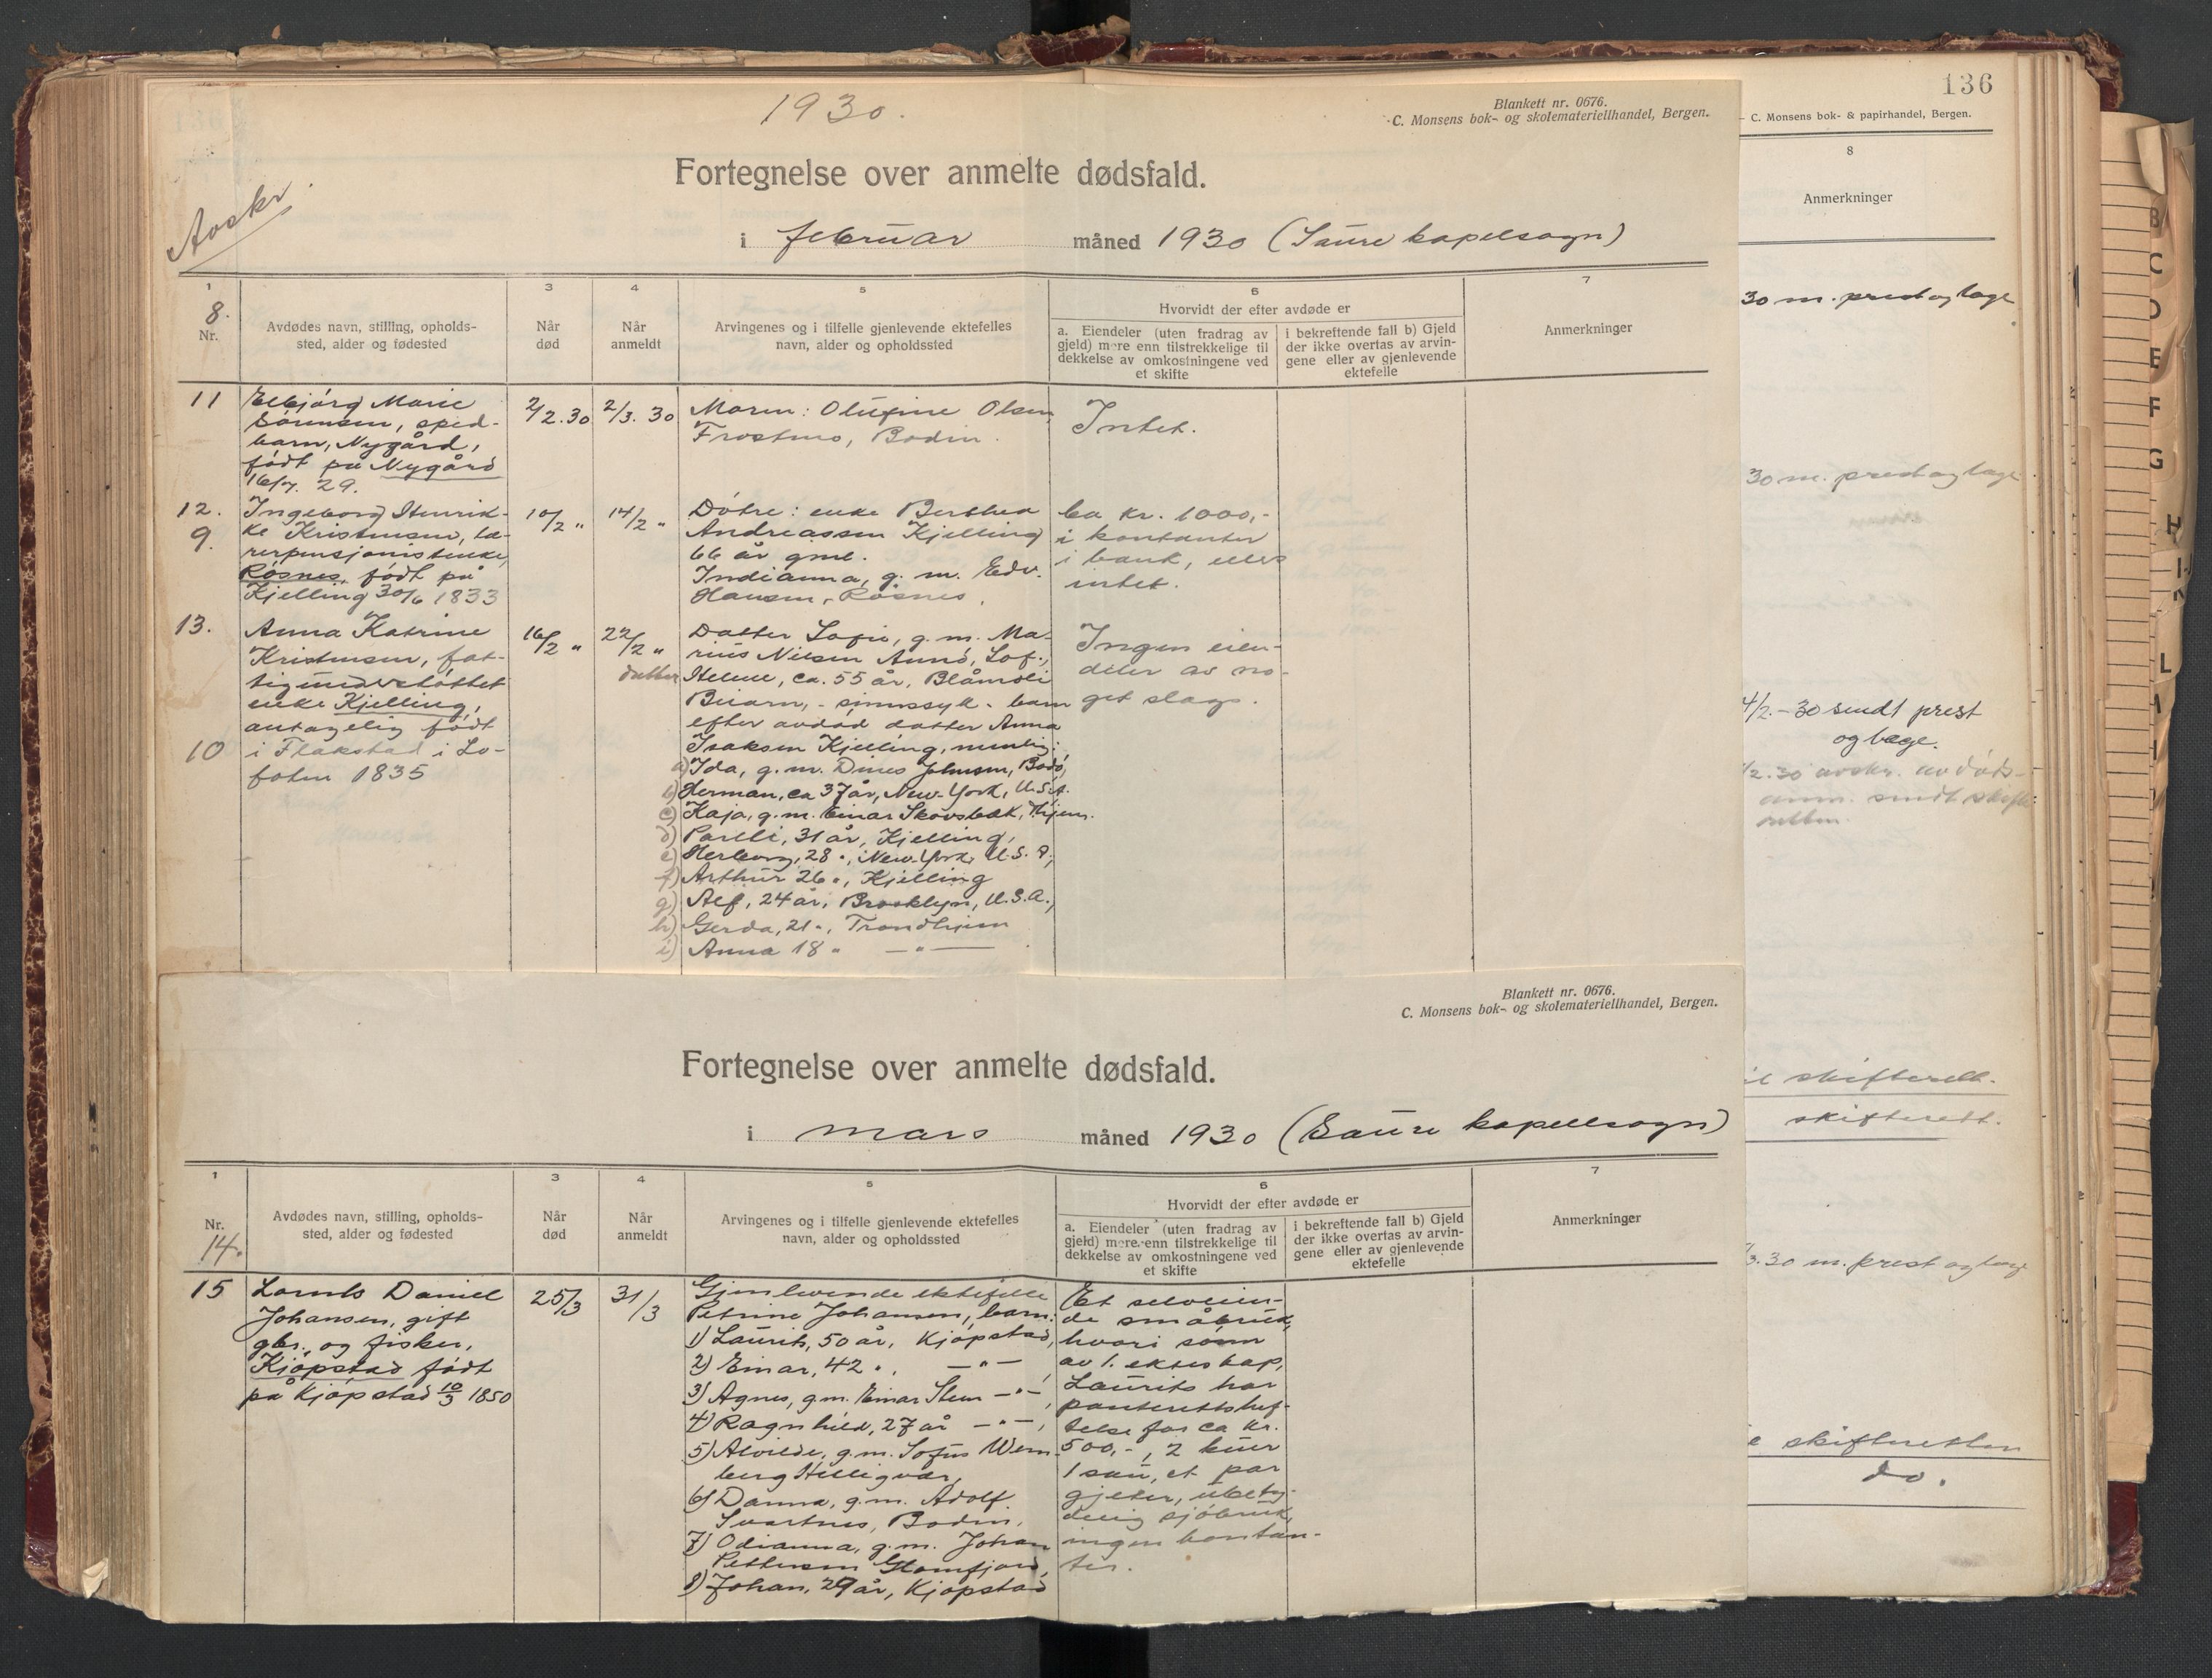 136
C. Monsens bok- & papirhandel, Bergen.
8
Anmerkninger
30 m. prest og læge
30 m. prest og læge
4/2.-30 sendt prest
og læge.
/2.30 avskr. av døds-
anm. sendt skifte-
retten.
skifterett.
skifterett.
3.30 m. prest og læge
skifteretten
do.
1930.
Blankett nr. 0676.
C. Monsens bok- og skolemateriellhandel, Bergen.
Avskr.
Fortegnelse over anmelte dødsfald.
i februar måned 1930 (Saure kapelsogn)
1
3
4
5
6
7
8.
Nr.
Avdødes navn, stilling, opholds-
sted, alder og fødested
Når
død
Når
anmeldt
Arvingenes og i tilfelle gjenlevende ektefelles
navn, alder og opholdssted
Hvorvidt der efter avdøde er
a. Eiendeler (uten fradrag av
gjeld) mere enn tilstrekkelige til
dekkelse av omkostningene ved
et skifte
i bekreftende fall b) Gjeld
der ikke overtas av arvin-
gene eller av gjenlevende
ektefelle
Anmerkninger
11
Elbjørg Marie
Sørensen, sped-
barn, Nygård,
født på Nygård
16/7. 29.
2/2.30
2/3. 30
Moren: Olufine Olsen
Frostmo, Bodin.
Intet.
12.
9.
Ingeborg Henrik-
ke Kristensen, læ-
rerpensjonistenke,
Røsnes, født på
Kjelling 30/6 1833
10/2 "
14/2 "
Døtre: enke Berthea
Andreassen Kjelling
66 år gml.
Indianna, g. m. Edv.
Hansen, Røsnes,
ca kr. 1000,-
i kontanter
i bank, ellers
intet.
13.
10
Anna Katrine
Kristensen, fat-
tigunderstøttet
enke Kjelling,
antagelig født
i Flakstad i Lo-
foten 1835
16/2 "
22/2 "
Datter Sofie, g. m. Ma-
rius Nilsen Aunø, Lof.,
datter Helene, ca. 55 år, Blåmoli
Beiarn, - sinnssyk - barn
efter avdød datter Anna
Isaksen Kjelling, nemlig:
a) Ida, g. m. Dines Johnsen, Bodø,
b) Herman, ca 37 år, New-York, U.S.A.
c) Kaja, g. m. Einar Skovsbæk, Thjem.
d) Parelli, 31 år, Kjelling,
e) Herborg, 28 ", New-York, U. S. A,
f) Arthur 26 ", Kjelling
g) Alf, 24 år, Brooklyn, U.S.A.,
h) Gerda, 21 ", Trondhjem
i) Anna 18 " — " —
Ingen eien-
deler av no-
get slags.
Blankett nr. 0676.
C. Monsens bok- og skolemateriellhandel, Bergen.
Fortegnelse over anmelte dødsfald.
i mars måned 1930 (Saure kapellsogn)
1
3
4
5
6
7
Nr.
14.
Avdødes navn, stilling, opholds-
sted, alder og fødested
Når
død
Når
anmeldt
Arvingenes og i tilfelle gjenlevende ektefelles
navn, alder og opholdssted
Hvorvidt der efter avdøde er
a. Eiendeler (uten fradrag av
gjeld) mere enn tilstrekkelige til
dekkelse av omkostningene ved
et skifte
i bekreftende fall b) Gjeld
der ikke overtas av arvin-
gene eller av gjenlevende
ektefelle
Anmerkninger
15
Lornts Daniel
Johansen, gift
gbr. og fisker,
Kjøpstad født
på Kjøpstad 10/3 1850
25/3
31/3
Gjenlevende ektefelle
Petrine Johansen, barn:
1) Laurits, 50 år, Kjøpstad,
2) Einar, 42 ", — " —
3) Agnes, g.m. Einar Steen — " —,
4) Ragnhild, 27 år — " —,
5) Alvilde, g.m. Sofus Wem-
berg Helligvær,
6) Danna, g.m. Adolf
Svartnes, Bodin,
7) Odianna, g. m. Johan
Pettersen Glomfjord,
8) Johan, 29 år, Kjøpstad
Et selveien-
de småbruk,
hvori sønn
av 1. ekteskap,
Laurits har
panteretts hef-
telse for ca kr.
500,-, 2 kuer
1 sau, et par
gjeter, ubety-
delig sjøbruk,
ingen kontan-
ter.
B
C
D
E
F
G
H
L